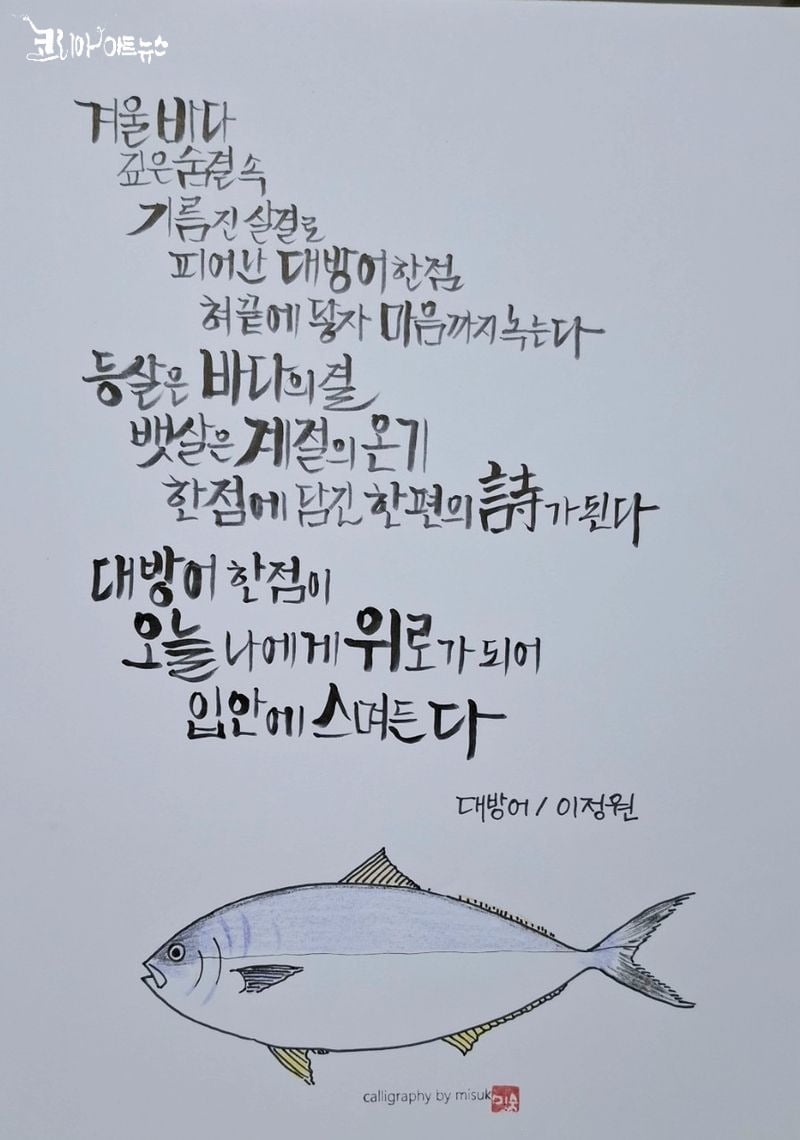 코리아아트뉴스
겨울 바다
깊은 숨결 속
기름진 살결로
피어난 대방어 한 점
혀끝에 닿자 마음까지 녹는다
등살은 바다의 결
뱃살은 계절의 온기
한 점에 담긴 한 편의 詩가 된다
대방어 한 점이
오늘 나에게 위로가 되어
입안에 스며든다
대방어 / 이정원
calligraphy by misuk
미숙